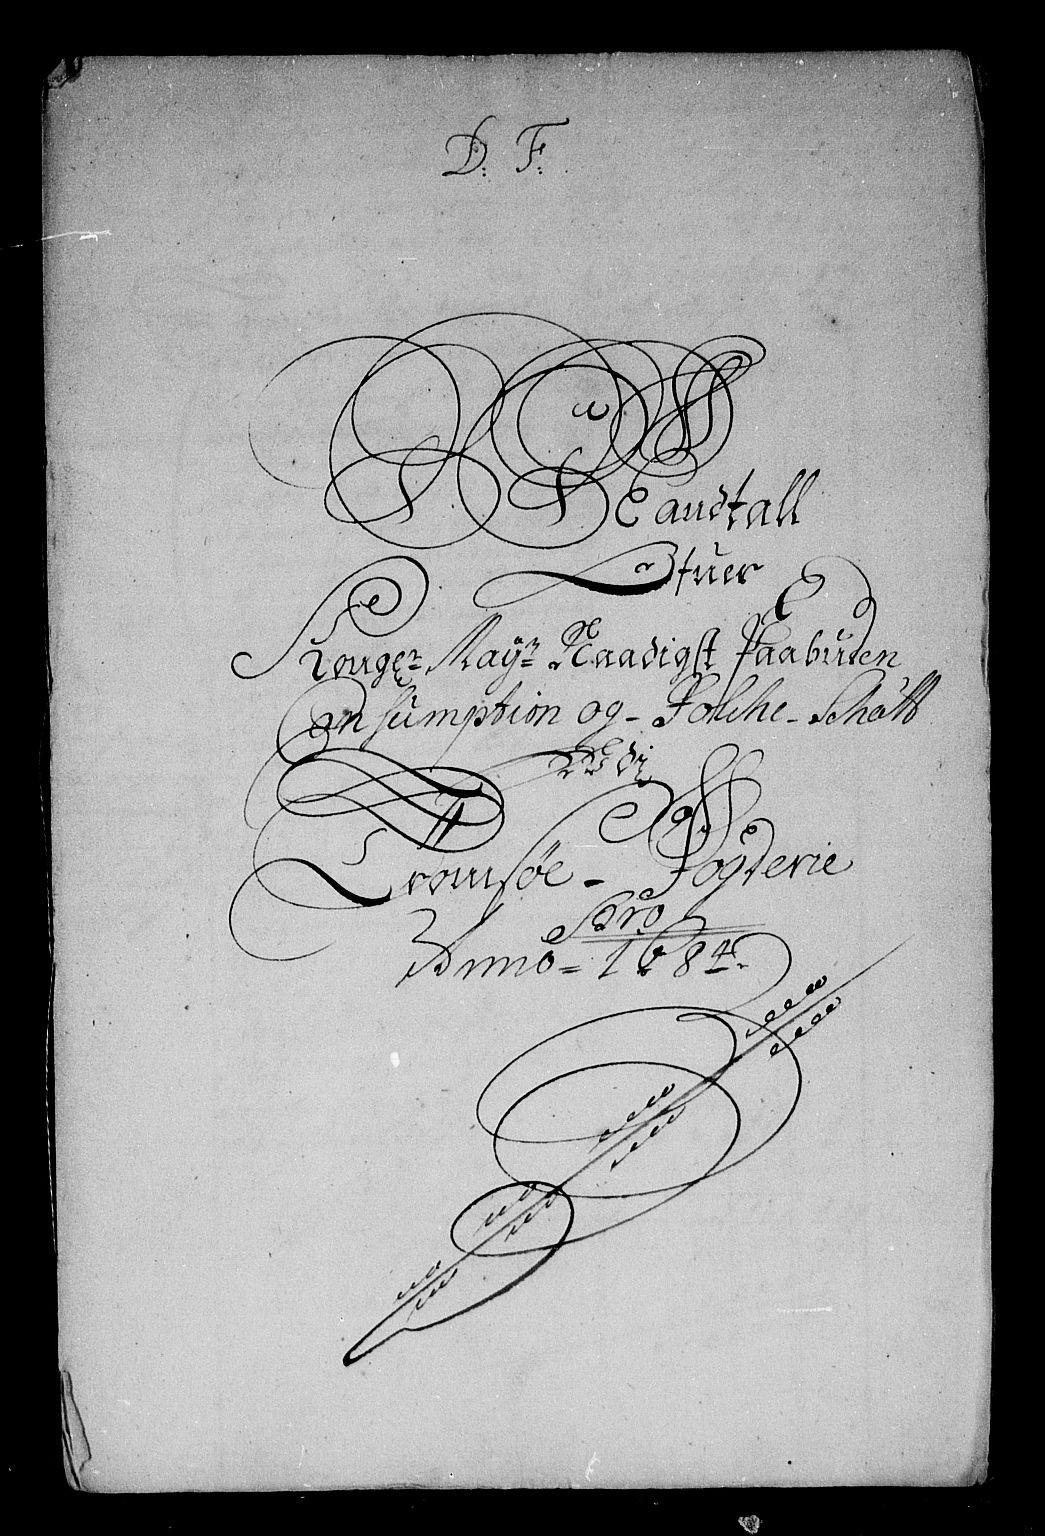 D: F:
Mandtall
Ofuer
Konge: May: Naadigst Paabuden
Consumption og Folche Schatt
Udj
Tromsøe Fogderie
Pro
Anno 1684.